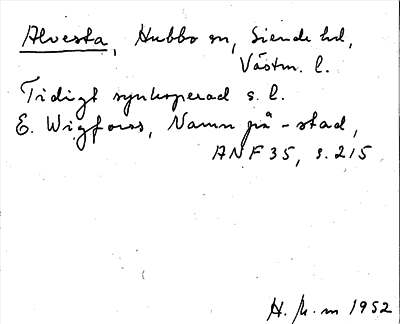 Alvesta, Hubbo sn, Siende hd,
Västm. l.
Tidigt synkoperad s. l.
E. Wigforss, Namn på -stad,
ANF 35, s. 215
H. k. m 1952